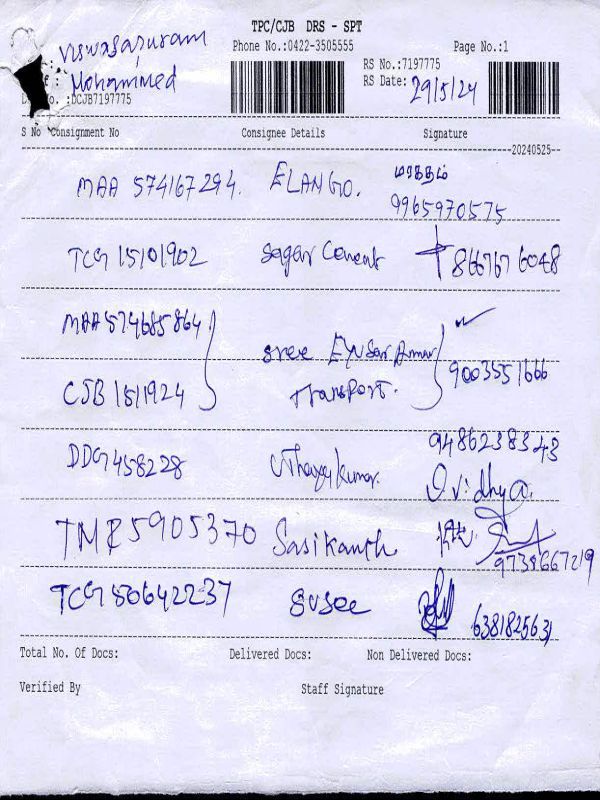 TPC/CJB DRS - SPT
Viswasapuram
Phone No.:0422-3505555 Page No.:1
Mohammed
RS No.:7197775
RS Date: 29/5/24
No. :DCJB7197775
S No Consignment No Consignee Details Signature
20240525
MAA 574167294. ELANGO. மரகதம்
9965970575
TCG 15101902 Sagar Cement 8667676048
MAA 574685864
Sree Transport. 9003551666
CJB 1511924
DDG 458228 Uthayakumar. 9486238343
O.vidhya.
TMR 5905370 Sasikanth
9738667219
TCG 50642237 Susee 638182563
Total No. Of Docs: Delivered Docs: Non Delivered Docs:
Verified By Staff Signature